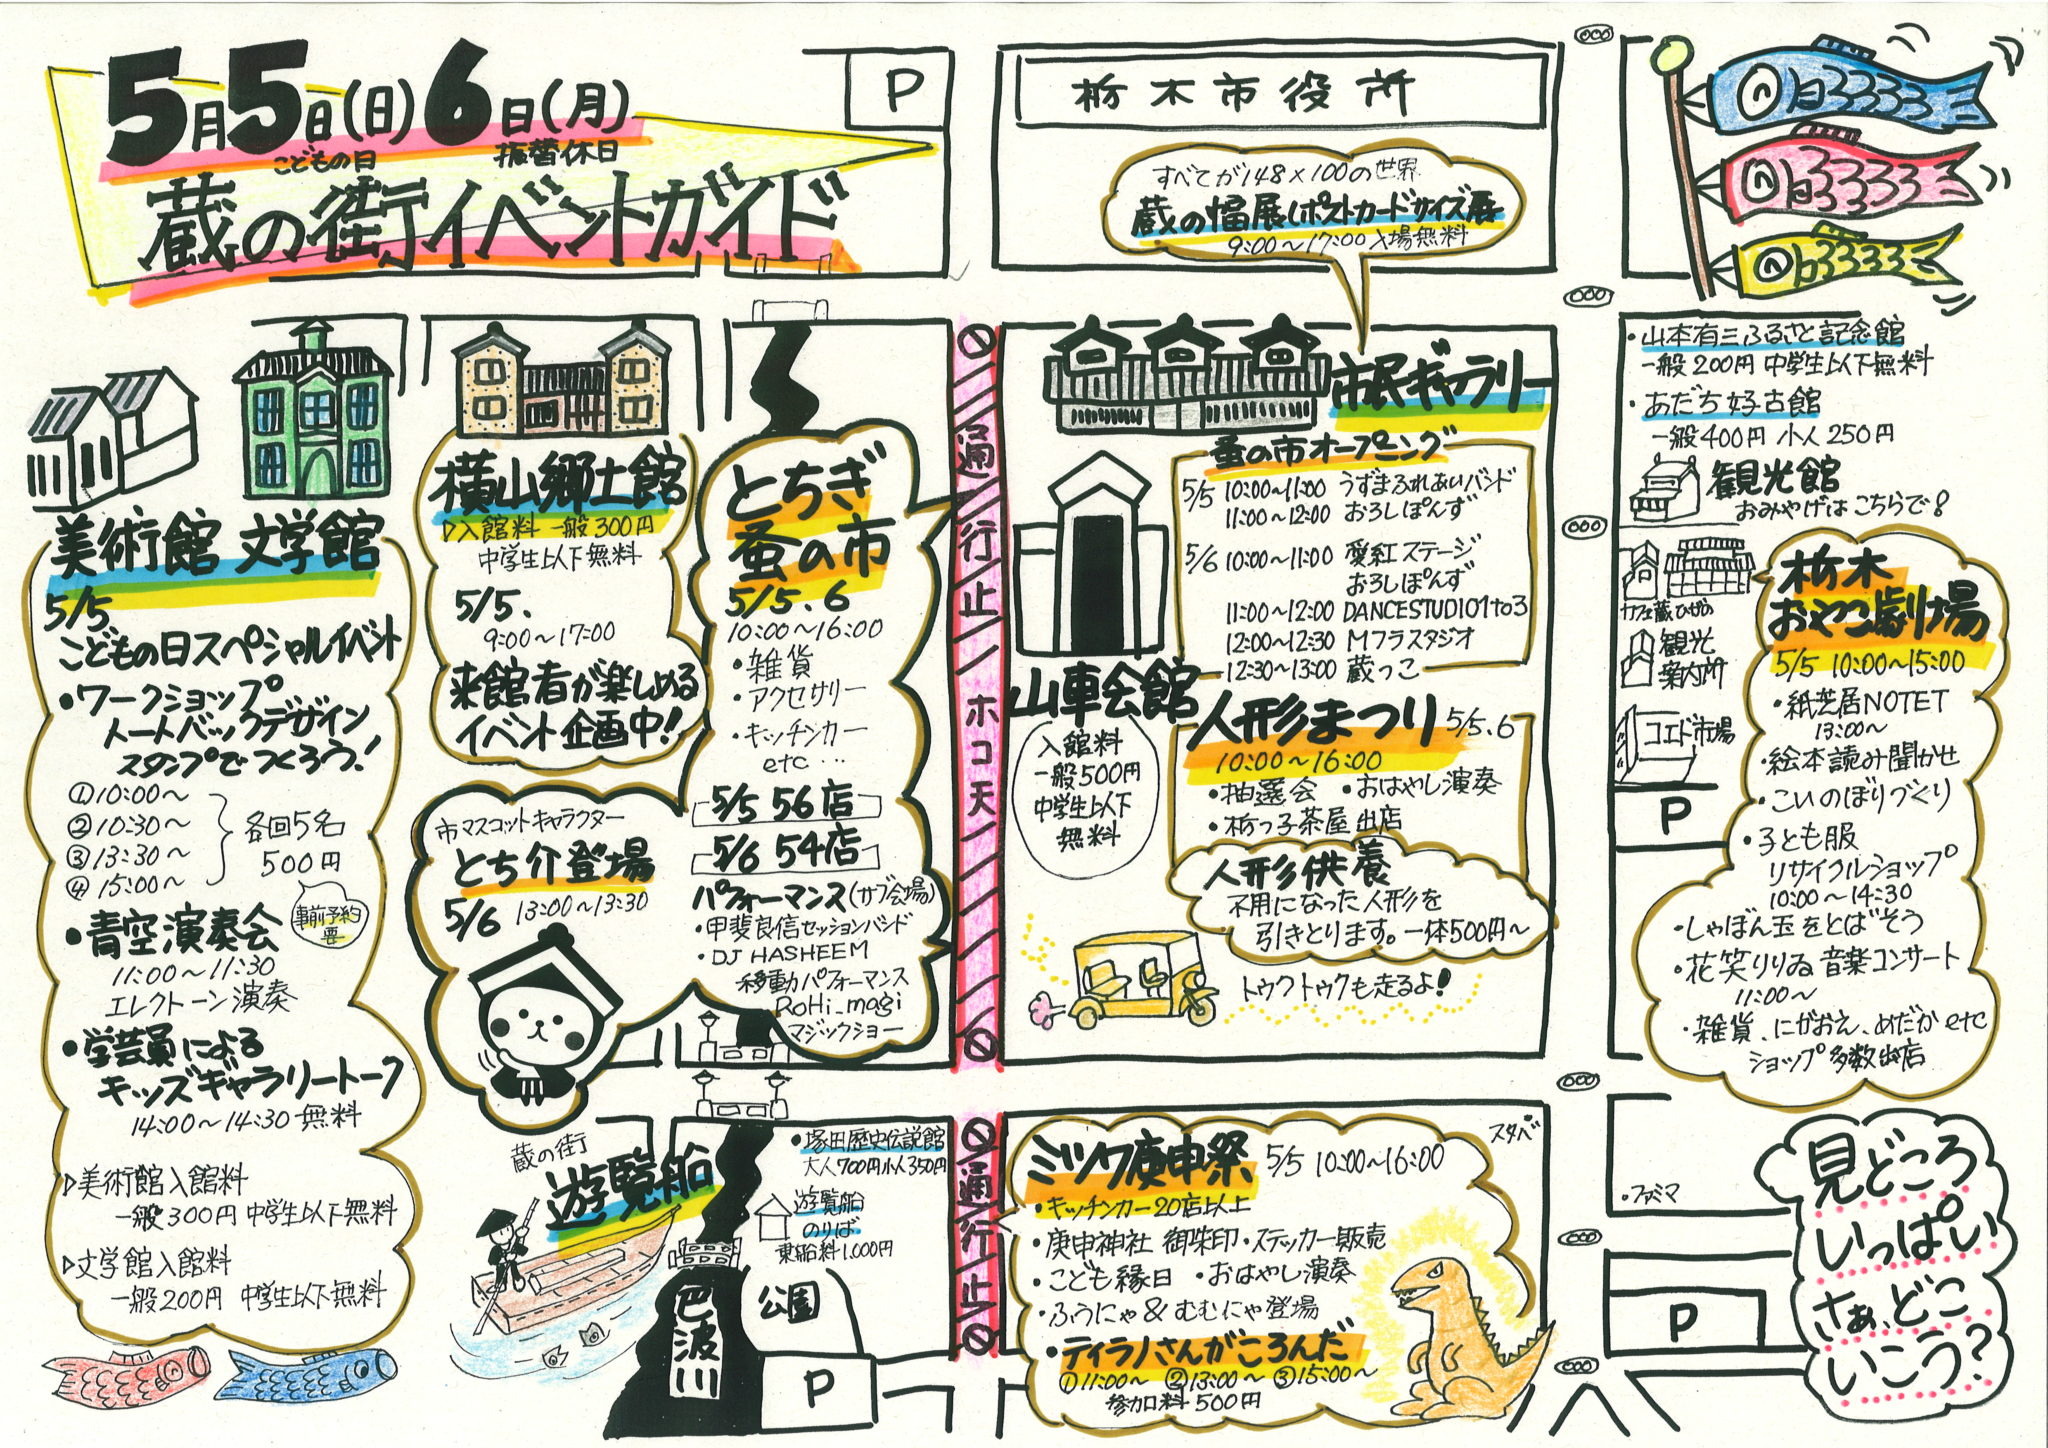 5月5日(日)6日(月)
こどもの日 振替休日
蔵の街イベントガイド
P
栃木市役所
すべてが148×100の世界
蔵の幅展(ポストカードサイズ展
9:00〜17:00 入場無料
美術館 文学館
5/5
こどもの日スペシャルイベント
・ワークショップ
トートバックデザイン
スタンプでつくろう!
①10:00〜
②10:30〜
③13:30〜
④15:00〜
各回5名
500円
事前予約
要
・青空演奏会
11:00〜11:30
エレクトーン演奏
・学芸員による
キッズギャラリートーク
14:00〜14:30 無料
▷美術館入館料
一般300円 中学生以下無料
▷文学館入館料
一般200円 中学生以下無料
横山郷土館
▷入館料 一般300円
中学生以下無料
5/5.
9:00〜17:00
来館者が楽しめる
イベント企画中!
市マスコットキャラクター
とち介登場
5/6 13:00〜13:30
とちぎ
蚤の市
5/5.6
10:00〜16:00
・雑貨
・アクセサリー
・キッチンカー
etc…
5/5 56店
5/6 54店
パフォーマンス(サブ会場)
・甲斐良信セッションバンド
・DJ HASHEEM
移動パフォーマンス
RoHi_magi
マジックショー
蔵の街
遊覧船
・塚田歴史伝説館
大人700円小人350円
遊覧船
のりば
乗船料1,000円
巴波川
公園
P
通行止 ホコ天
通行止
市民ギャラリー
蚤の市オープニング
5/5 10:00〜11:00 うずまふれあいバンド
11:00〜12:00 おろしぽんず
5/6 10:00〜11:00 愛紅ステージ
おろしぽんず
11:00〜12:00 DANCESTUDIO1to3
12:00〜12:30 Mフラスタジオ
12:30〜13:00 蔵っこ
山車会館
入館料
一般500円
中学生以下
無料
人形まつり 5/5.6
10:00〜16:00
・抽選会 ・おはやし演奏
・栃っ子茶屋出店
人形供養
不用になった人形を
引きとります。一体500円〜
トゥクトゥクも走るよ!
ミツワ庚申祭 5/5 10:00〜16:00
・キッチンカー20店以上
・庚申神社 御朱印・ステッカー販売
・こども縁日 ・おはやし演奏
・ふうにゃ&むむにゃ登場
・ティラノさんがころんだ
①11:00〜 ②13:00〜 ③15:00〜
参加料500円
スタベ
・山本有三ふるさと記念館
一般200円 中学生以下無料
・あだち好古館
一般400円 小人250円
観光館
おみやげはこちらで!
カフェ蔵
観光
案内所
コエド市場
P
栃木
おやこ劇場
5/5 10:00〜15:00
・紙芝居NOTET
13:00〜
・絵本読み聞かせ
・こいのぼりづくり
・子ども服
リサイクルショップ
10:00〜14:30
・しゃぼん玉をとばそう
・花笑りりゐ 音楽コンサート
11:00〜
・雑貨、にがおえ、めだかetc
ショップ多数出店
・ファミマ
P
見どころ
いっぱい
さぁ、どこ
いこう?